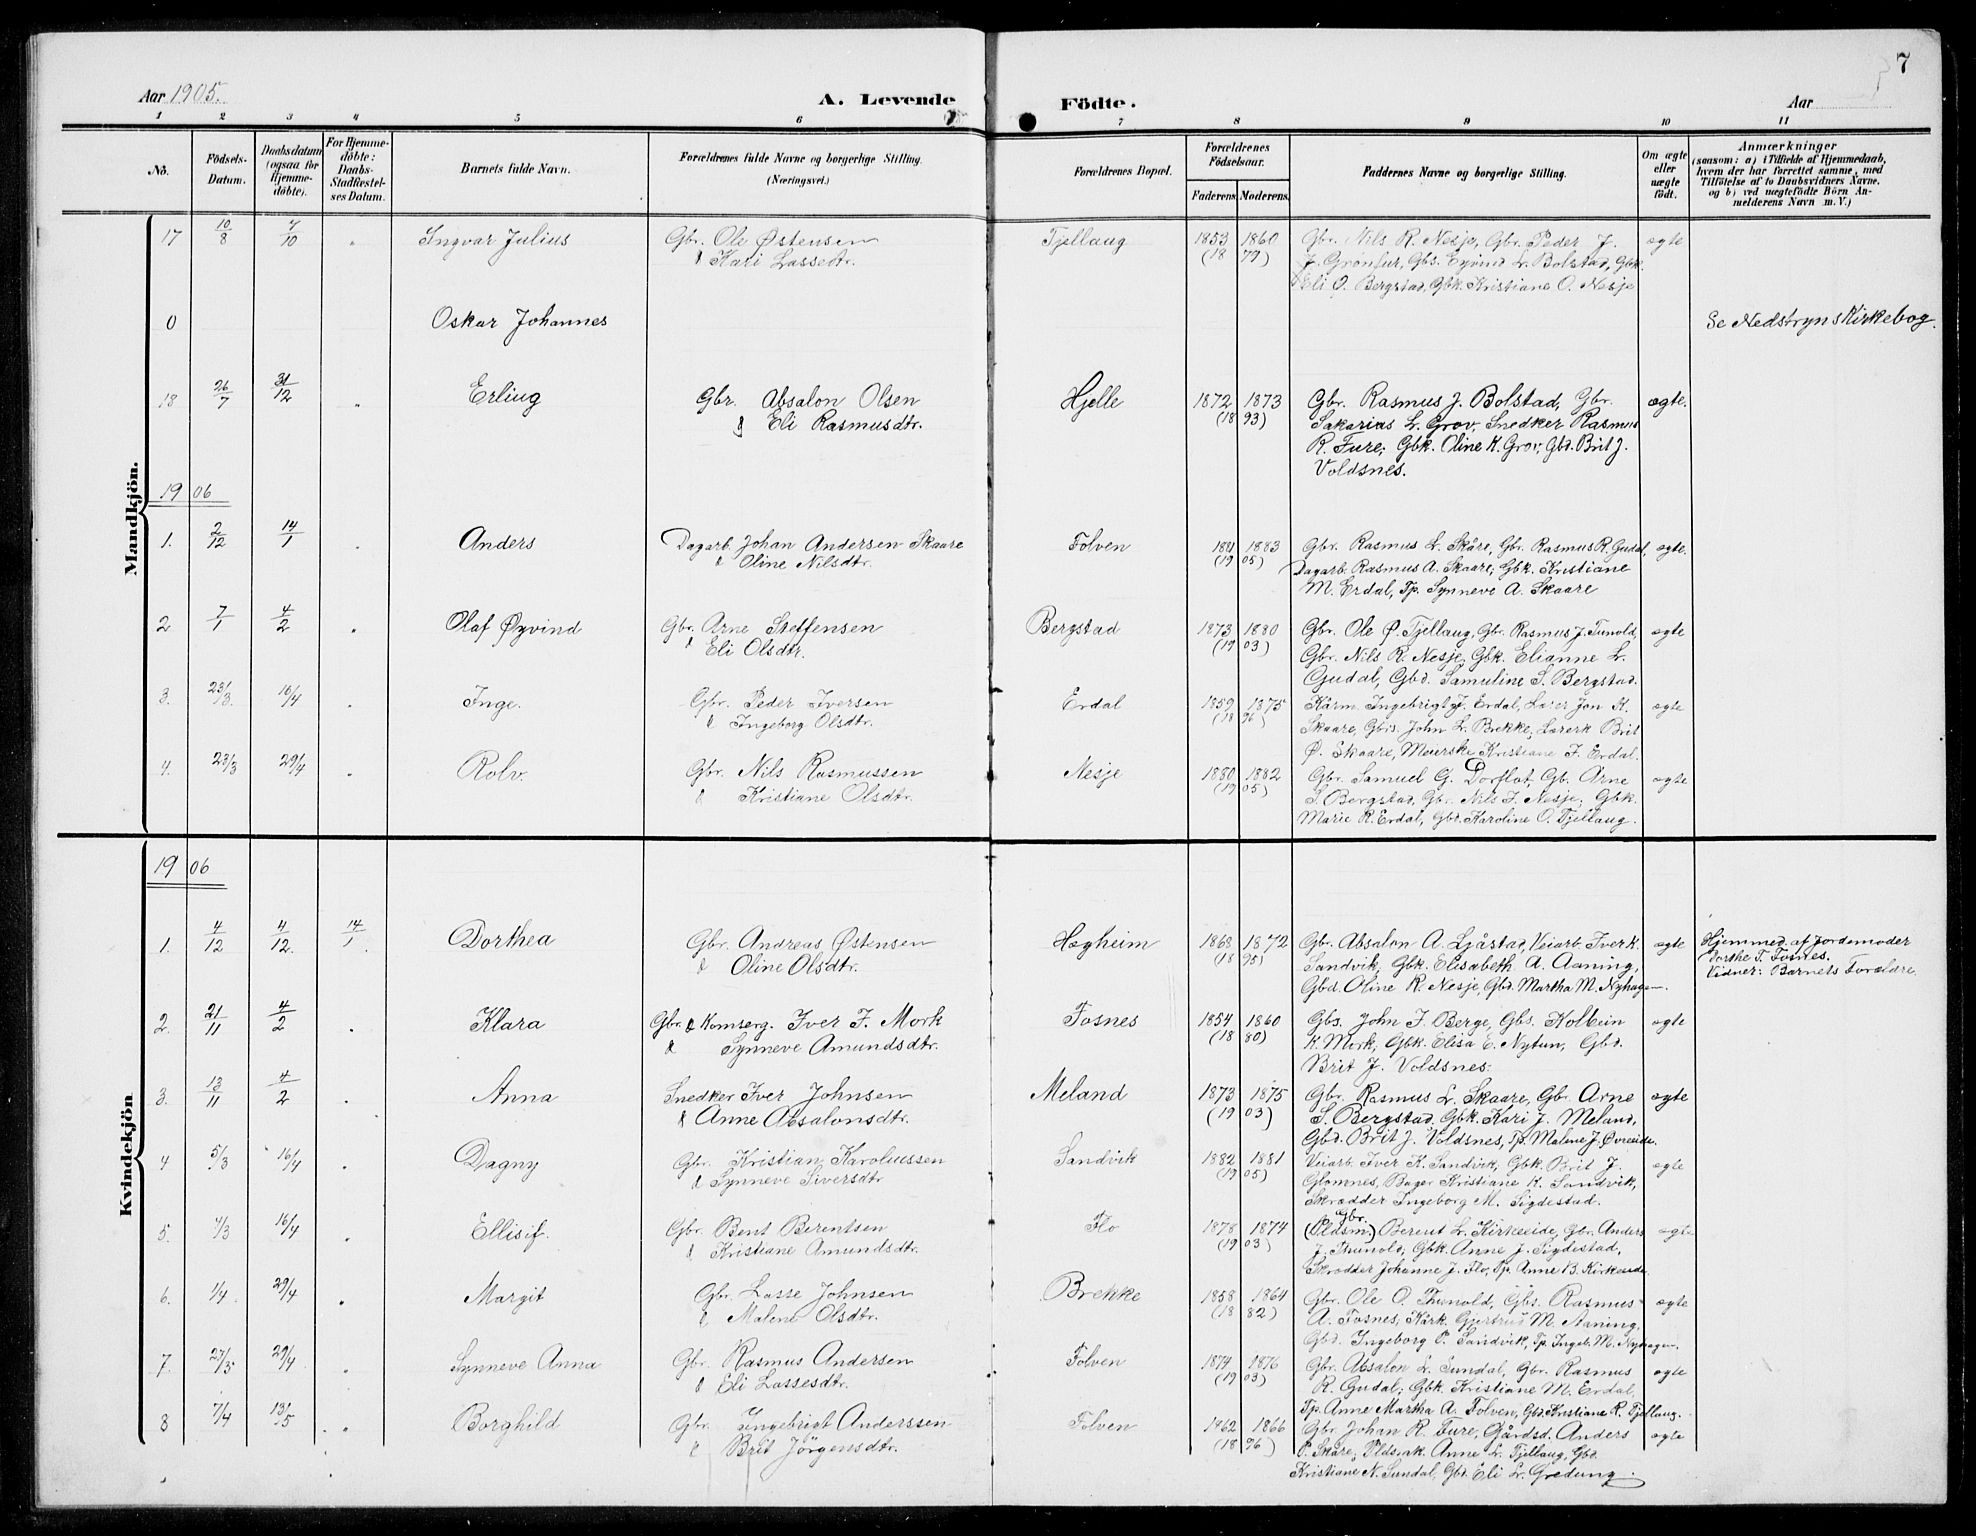 7
Aar 1905.
A. Levende Födte.
Aar
1 2 3 4 5 6 7 8 9 10 11
No.
Födsels-Datum.
Daabsdatum (ogsaa for Hjemmedöbte).
For Hjemmedöbte: Daabs-StadRestelses Datum.
Barnets fulde Navn.
Forældrenes fulde Navne og borgerlige Stilling. (Næringsvei.)
Forældrenes Bopæl.
Forældrenes Födselsaar.
Faderens Moderens.
Faddernes Navne og borgerlige Stilling.
Om ægte eller uægte födt.
Anmærkninger
(saasom: a) i Tilfælde af Hjemmedaab,
hvem der har forrettet samme, med
Tilföielse af to Daabsvidners Navne,
og b) ved uægtefödte Börn An-
melderens Navn m. V.)
Mandkjön.
17 10/8 7/10 " Ingvar Julius Gbr. Ole Østensen Tjellaug 1853 1860 Gbr. Nils R. Nesje, Gbr. Peder J. ægte
& Kari Lassedtr. (18 79) J. Grønfur, Gbs. Eyvind L. Bolstad, Gbk.
Eli O. Bergstad, Gbk. Kristiane O. Nesje
0 Oskar Johannes Se Nedstryns Kirkebog.
18 26/7 31/12 " Erling Gbr. Absalon Olsen Hjelle 1872 1873 Gbr. Rasmus J. Bolstad, Gbr. ægte.
& Eli Rasmusdtr. (18 93) Sakarias L. Grov, Snedker Rasmus
R. Fure; Gbk. Oline K. Grov, Gbd. Brit J.
Voldsnes.
1906
1. 2/12 14/1 " Anders Dagarb. Johan Andersen Skaare Folven 1881 1883 Gbr. Rasmus L. Skåre, Gbr. Rasmus R. Gudal, ægte.
& Oline Nilsdtr. (19 05) Dagarb. Rasmus A. Skaare; Gbk. Kristiane
M. Erdal, Tp. Synneve A. Skaare
2 7/1 4/2 " Olaf Øyvind Gbr. Arne Steffensen Bergstad 1873 1880 Gbr. Ole Ø. Tjellaug, Gbr. Rasmus J. Tunold, ægte
& Eli Olsdtr. (19 03) Gbr. Nils R. Nesje, Gbk. Elianne L.
Gudal, Gbd. Samuline S. Bergstad.
3. 23/3 16/4 " Inge. Gbr. Peder Iversen Erdal 1859 1875 Kårm. Ingebrigt J. Erdal, Lærer Jon K. ægte
& Ingeborg Olsdtr. (18 96) Skaare, Gbs. John L. Brekke, Lærerk Brit
Ø. Skaare, Meierske Kristiane J. Erdal.
4. 23/3 29/4 " Rolv. Gbr. Nils Rasmussen Nesje 1880 1882 Gbr. Samuel G. Dorflot, Gb. Arne ægte
& Kristiane Olsdtr. (19 05) S. Bergstad, Gbr. Nils J. Nesje; Gbk.
Marie R. Erdal, Gbd. Karoline O. Tjellaug.
Kvindekjön
1906
1. 4/12 4/12. 14/1. Dorthea Gbr. Andreas Østensen Hægheim 1868 1872 Gbr. Absalon A. Ljåstad, Veiarb. Iver K. ægte Hjemmed. af Jordemoder
& Oline Olsdtr. (18 95) Sandvik, Gbk. Elisabeth A. Aaning, Dorthe T. Fosnes.
Gbd. Oline R. Nesje, Gbd. Martha M. Nyhagen. Vidner: Barnets Forældre.
2. 21/11 4/2 " Klara Gbr. & Komserg. Iver J. Mork Fosnes 1854 1860 Gbs. John J. Berge, Gbs. Kolbein ægte
& Synneve Amundsdtr. (18 80) K. Mork, Gbk. Elisa E. Nytun, Gbd.
Brit J. Voldsnes.
3. 13/11 4/2 " Anna Snedker Iver Johnsen Meland 1873 1875 Gbr. Rasmus L. Skaare, Gbr. Arne ægte
& Anne Absalonsdtr. (19 03) S. Bergstad, Gbk. Kari J. Meland,
Gbd. Brit J. Voldsnes, Tp. Malene J. Øvreeide.
4 5/3 16/4 " Dagny Gbr. Kristian Karoliussen Sandvik 1882 1881 Veiarb. Iver K. Sandvik, Gbk. Brit J. ægte
& Synneve Siversdtr (19 05) Glomnes, Bager Kristiane K. Sandvik,
Skrædder Ingeborg M. Sigdestad.
5. 7/3 16/4 " Ellisif. Gbr. Bent Berentsen Flo 1878 1874 (Pldsm.) Gbr. Berent L. Kirkeeide, Gbr. Anders ægte
& Kristiane Amundsdtr. (19 03) J. Thunold, Gbk. Anne J. Sigdestad,
Skrædder Johanne J. Flo, Tp. Anne B. Kirkeeide.
6. 1/4. 29/4 " Margit Gbr. Lasse Johnsen Brekke 1858 1864 Gbr. Ole O. Thunold, Gbs. Rasmus ægte
& Malene Olsdtr. (18 82) A. Fosnes, Kårk. Gjertrud M. Aaning,
Gbd. Ingeborg P. Sandvik, Tp. Ingeb. M. Nyhagen.
7. 27/3 29/4 " Synneve Anna Gbr. Rasmus Andersen Folven 1874 1876 Gbr. Absalon L. Sundal, Gbr. Rasmus ægte
& Eli Lassesdtr. (19 03) R. Gudal; Gbk. Kristiane M. Erdal,
Tp. Anne Martha A. Folven, Gbd. Kristiane R. Tjellaug.
8 7/4 13/5 " Borghild Gbr. Ingebrigt Anderssen Folven 1862 1866 Gbr. Johan R. Fure, Gårdsd. Anders ægte
& Brit Jörgensdtr. (18 96) P. Skåre; Pldsenk. Anne L. Tjellaug, Gbd.
Kristiane N. Sundal, Gbd. Eli L. Greidung.